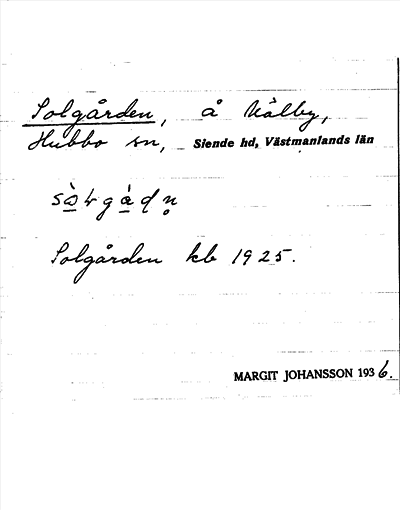 Solgården, å Kälby,
Hubbo sn, Siende hd, Västmanlands län
Solgården kb 1925.
MARGIT JOHANSSON 1936.